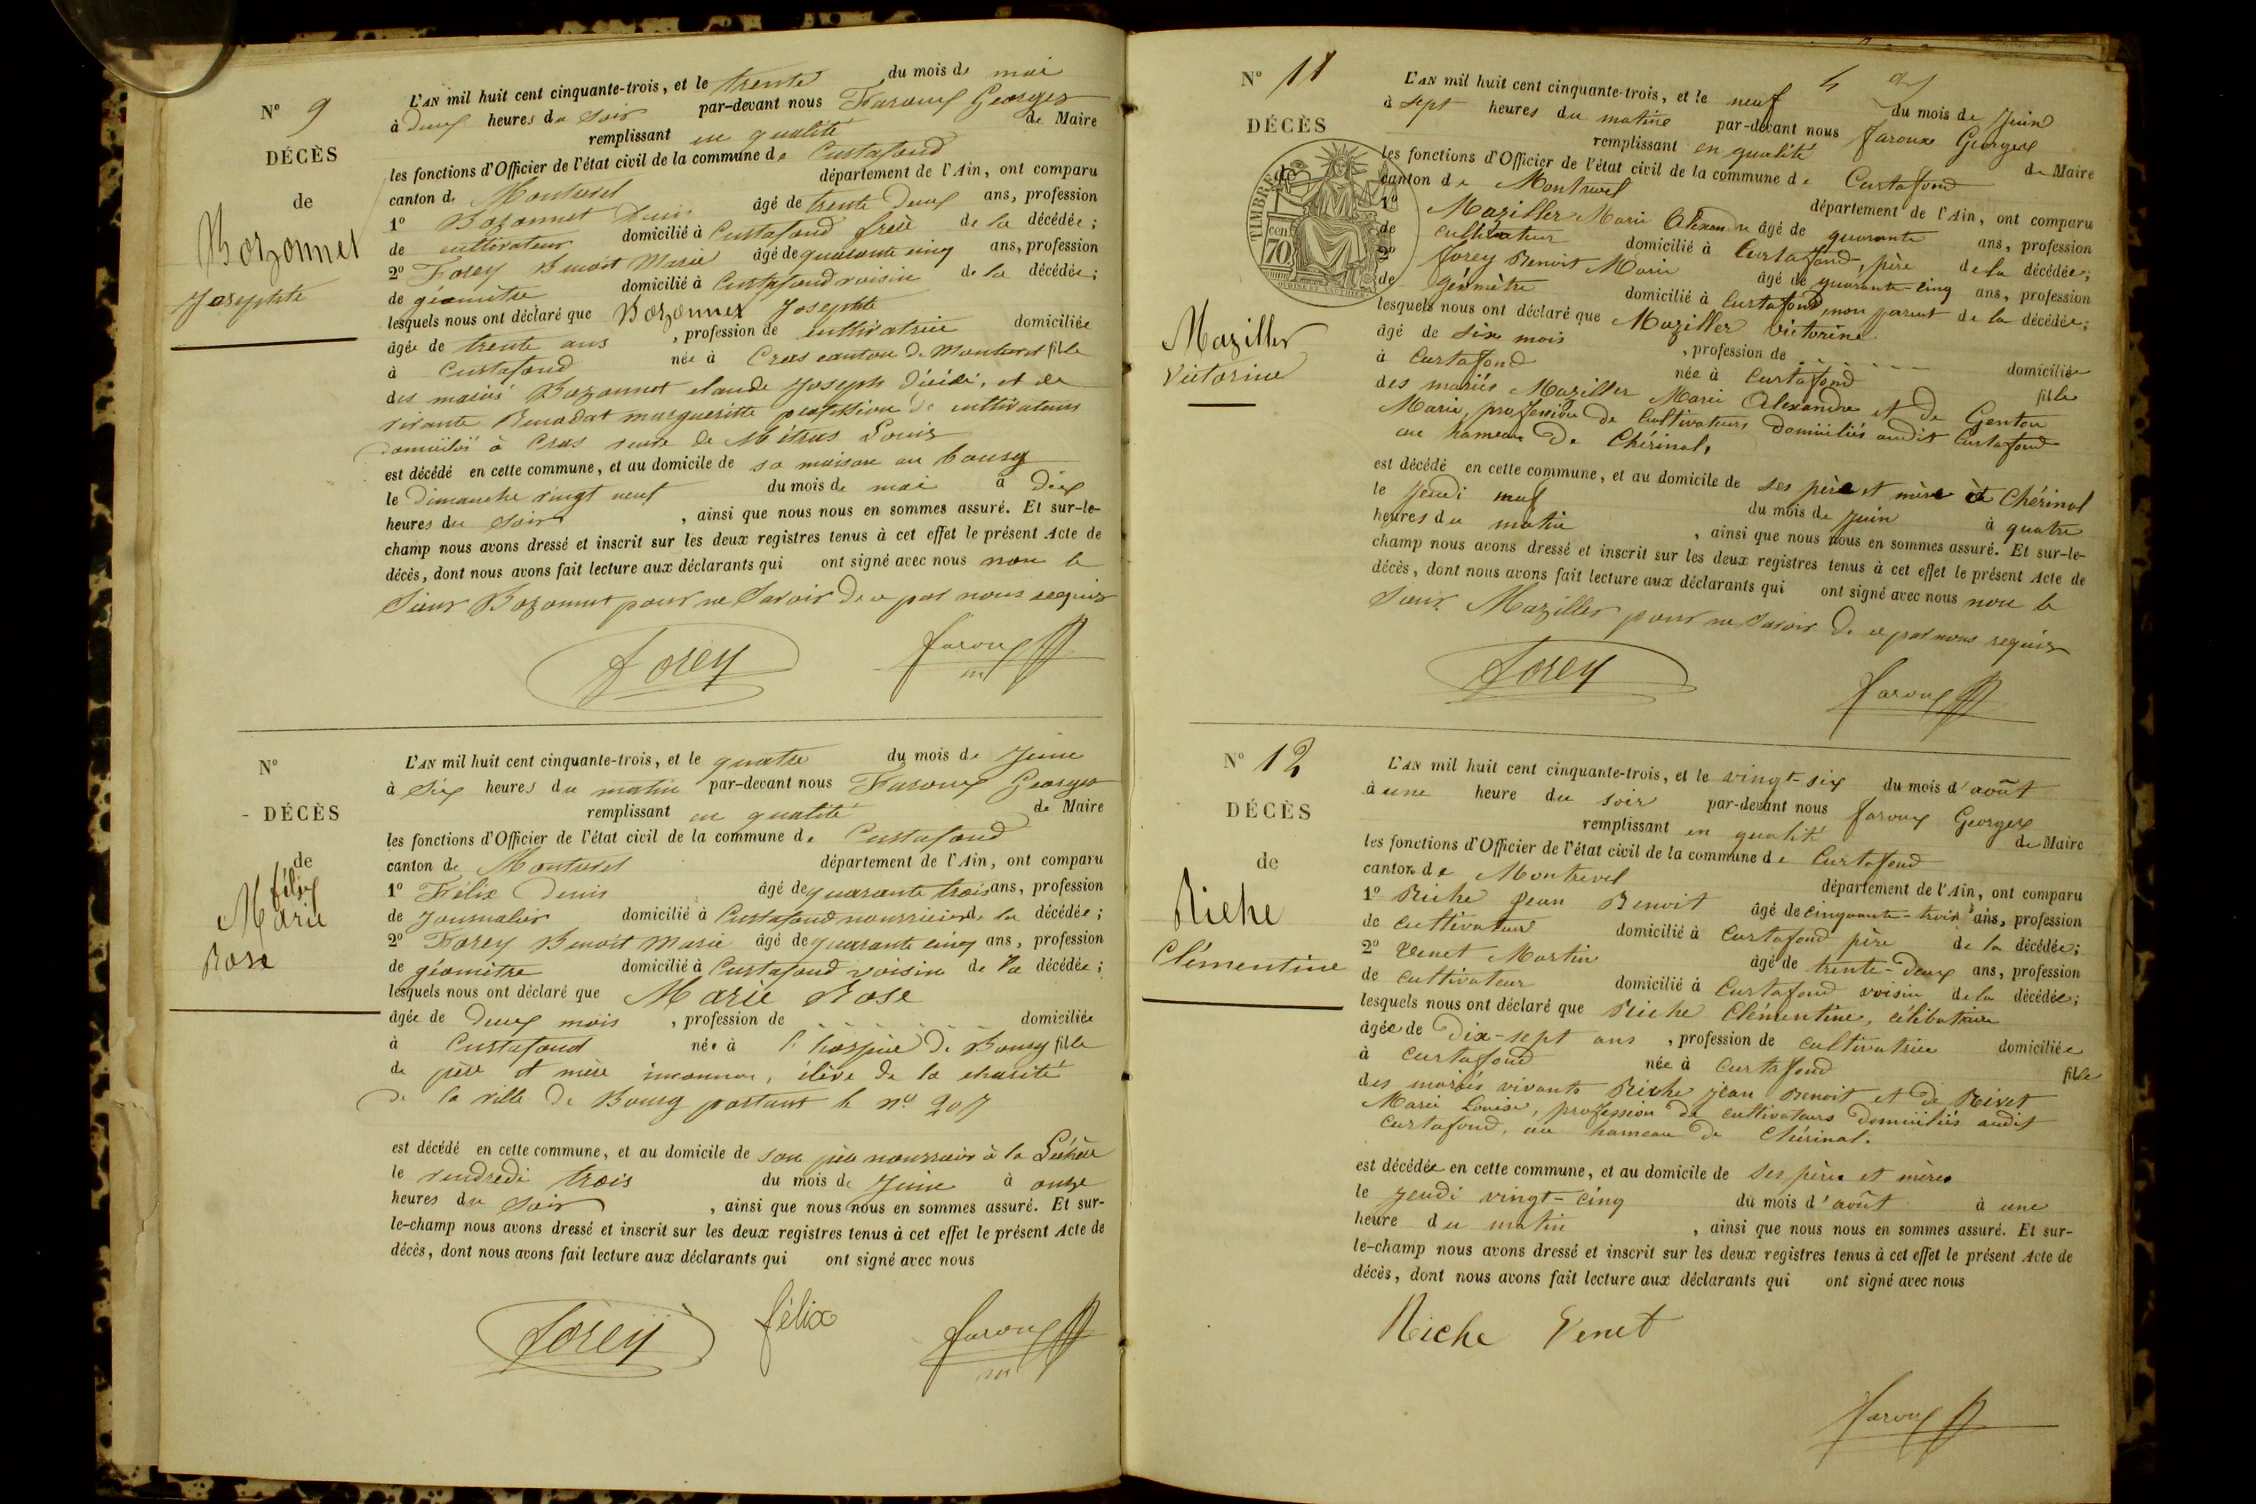 N° 9
DÉCÈS
de
Bozonnet
Josephte
L'AN mil huit cent cinquante-trois, et le trente du mois de mai
à deux heures du soir par-devant nous Faroux Georges
remplissant en qualité de Maire
les fonctions d'Officier de l'état civil de la commune de Curtafond
canton de Montrevel département de l'Ain, ont comparu
1° Bozonnet Denis âgé de trente deux ans, profession
de cultivateur domicilié à Curtafond frère de la décédée;
2° Forey Benoit Marie âgé de quarante cinq ans, profession
de géomètre domicilié à Curtafond voisin de la décédée;
lesquels nous ont déclaré que Bozonnet Josephte
âgée de trente ans , profession de cultivatrice domiciliée
à Curtafond née à Cras canton de Montrevel fille
des mariés Bozonnet claude Joseph décédé, et de
vivante margueritte profession de cultivateurs
domiciliés à Cras veuve de Métras Louis
est décédé en cette commune, et au domicile de sa maison au bourg
le Dimanche vingt neuf du mois de mai à dix
heures du soir , ainsi que nous nous en sommes assuré. Et sur-le-
champ nous avons dressé et inscrit sur les deux registres tenus à cet effet le présent Acte de
décès, dont nous avons fait lecture aux déclarants qui ont signé avec nous non le
Sieur Bozonnet pour ne Savoir de ce par nous requis
Forey Faroux
m
N°
DÉCÈS
de
félix
Marie
Rose
L'AN mil huit cent cinquante-trois, et le quatre du mois de Juin
à six heures du matin par-devant nous Faroux Georges
remplissant en qualité de Maire
les fonctions d'Officier de l'état civil de la commune de Curtafond
canton de Montrevel département de l'Ain, ont comparu
1° Félix Denis âgé de quarante trois ans, profession
de Journalier domicilié à Curtafond nourricier de la décédée;
2° Forey Benoit Marie âgé de quarante cinq ans, profession
de géomètre domicilié à Curtafond voisin de la décédée;
lesquels nous ont déclaré que Marie Rose
âgée de deux mois , profession de - - - - - domiciliée
à Curtafond née à l'hospice de Bourg fille
de père et mère inconnus, élève de la charité
de la ville de Bourg portant le n° 207
est décédé en cette commune, et au domicile de son père nourricier à la
le vendredi trois du mois de Juin à onze
heures du soir , ainsi que nous nous en sommes assuré. Et sur-
le-champ nous avons dressé et inscrit sur les deux registres tenus à cet effet le présent Acte de
décès, dont nous avons fait lecture aux déclarants qui ont signé avec nous
Forey félix faroux
m
N° 11
DÉCÈS
de
TIMBRE
70 cen
Maziller
Victorine
L'AN mil huit cent cinquante-trois, et le neuf du mois de Juin
à sept heures du matin par-devant nous faroux Georges
remplissant en qualité de Maire
les fonctions d'Officier de l'état civil de la commune de Curtafond
canton de Montrevel département de l'Ain, ont comparu
1° Maziller Marie Alexandre âgé de quarante ans, profession
de cultivateur domicilié à Curtafond, père de la décédée;
2° forey Benoit Marie âgé de quarante-cinq ans, profession
de géomètre domicilié à Curtafond, non parent de la décédée;
lesquels nous ont déclaré que Maziller Victorine
âgé de six mois , profession de - - - - - domiciliée
à Curtafond née à Curtafond fille
des mariés Maziller Marie Alexandre et de Genton
Marie, profession de Cultivateurs domiciliés audit Curtafond
au hameau de Chérinal,
est décédé en cette commune, et au domicile de ses père et mère à Chérinal
le Jeudi neuf du mois de Juin à quatre
heures du matin , ainsi que nous nous en sommes assuré. Et sur-le-
champ nous avons dressé et inscrit sur les deux registres tenus à cet effet le présent Acte de
décès, dont nous avons fait lecture aux déclarants qui ont signé avec nous non le
Sieur Maziller pour ne savoir de ce par nous requis
Forey
faroux
N° 12
DÉCÈS
de
Riche
Clémentine
L'AN mil huit cent cinquante-trois, et le vingt-six du mois d'août
à une heure du soir par-devant nous faroux Georges
remplissant en qualité de Maire
les fonctions d'Officier de l'état civil de la commune de Curtafond
canton de Montrevel département de l'Ain, ont comparu
1° Riche Jean Benoit âgé de cinquante-trois ans, profession
de cultivateur domicilié à Curtafond père de la décédée;
2° Venet Martin âgé de trente-deux ans, profession
de cultivateur domicilié à Curtafond voisin de la décédée;
lesquels nous ont déclaré que Riche Clémentine, célibataire
âgée de Dix-sept ans , profession de cultivatrice domiciliée
à Curtafond née à Curtafond fille
des mariés vivants Riche Jean Benoit et de Rivet
Marie Louise, profession de cultivateurs domiciliés audit
Curtafond, au hameau de Chérinal.
est décédée en cette commune, et au domicile de ses père et mère
le Jeudi vingt-cinq du mois d'août à une
heure du matin , ainsi que nous nous en sommes assuré. Et sur-
le-champ nous avons dressé et inscrit sur les deux registres tenus à cet effet le présent Acte de
décès, dont nous avons fait lecture aux déclarants qui ont signé avec nous
Riche Venet
faroux